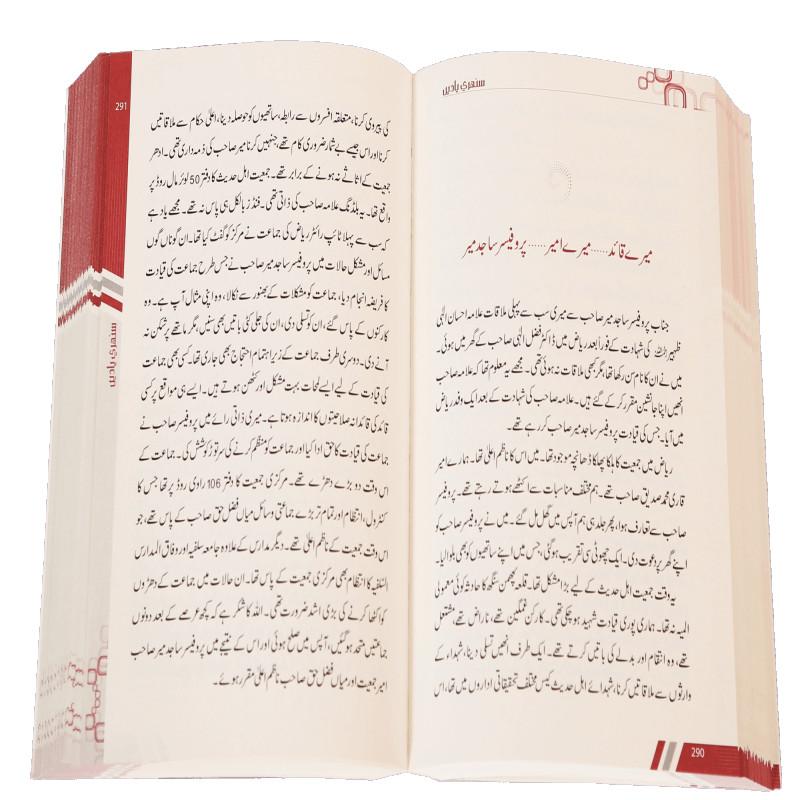 سنہری یادیں
میرے قائد......میرے امیر...... پروفیسر ساجد میر
جناب پروفیسر ساجد میر صاحب سے میری سب سے پہلی ملاقات علامہ احسان الٰہی
ظہیر کی شہادت کے فوراً بعد ریاض میں ڈاکٹر فضل الٰہی صاحب کے گھر میں ہوئی۔
میں نے ان کا نام سن رکھا تھا، مگر کبھی ملاقات نہ ہوئی تھی۔ مجھے یہ معلوم تھا کہ علامہ صاحب
انھیں اپنا جانشین مقرر کر کے گئے ہیں۔ علامہ صاحب کی شہادت کے بعد ایک وفد ریاض
میں آیا۔ جس کی قیادت پروفیسر ساجد میر صاحب کر رہے تھے۔
ریاض میں جمعیت کا ہلکا پھلکا ڈھانچہ موجود تھا۔ میں اس کا ناظم اعلیٰ تھا۔ ہمارے امیر
قاری محمد صدیق صاحب تھے۔ ہم مختلف مناسبات سے اکٹھے ہوتے رہتے تھے۔ پروفیسر
صاحب سے تعارف ہوا، پھر جلد ہی ہم آپس میں گھل مل گئے۔ میں نے پروفیسر صاحب کو
اپنے گھر پر دعوت دی۔ ایک چھوٹی سی تقریب ہو گئی، جس میں اپنے ساتھیوں کو بھی بلوا لیا۔
یہ وقت جمعیت اہل حدیث کے لیے بڑا مشکل تھا۔ قلعہ لچھمن سنگھ کا حادثہ کوئی معمولی
المیہ نہ تھا۔ ہماری پوری قیادت شہید ہو چکی تھی۔ کارکن غمگین تھے، ناراض تھے، مشتعل
تھے، وہ انتقام اور بدلے کی باتیں کرتے تھے۔ ایک طرف انھیں تسلی دینا، شہداء کے
وارثوں سے ملاقاتیں کرنا، شہدائے اہل حدیث کیس مختلف تحقیقاتی اداروں میں تھا، اس
290
291
سنہری یادیں
کی پیروی کرنا، متعلقہ افسروں سے رابطہ، ساتھیوں کو حوصلہ دینا، اعلیٰ حکام سے ملاقاتیں
کرنا اور اس جیسے بے شمار ضروری کام تھے، جنھیں کرنا میر صاحب کی ذمہ داری تھی۔ ادھر
جمعیت کے اثاثے نہ ہونے کے برابر تھے۔ جمعیت اہل حدیث کا دفتر 50 لوئر مال روڈ پر
واقع تھا۔ یہ بلڈنگ علامہ صاحب کی ذاتی تھی۔ فنڈز بالکل ہی پاس نہ تھے۔ مجھے یاد ہے
کہ سب سے پہلا ٹائپ رائٹر ریاض کی جماعت نے مرکز کو گفٹ کیا تھا۔ ان گوناں گوں
مسائل اور مشکل حالات میں پروفیسر ساجد میر صاحب نے جس طرح جماعت کی قیادت
کا فریضہ انجام دیا، جماعت کو مشکلات کے بھنور سے نکالا، وہ اپنی مثال آپ ہے۔ وہ
کارکنوں کے پاس گئے، ان کو تسلی دی، ان کی جلی کٹی باتیں بھی سنیں، مگر ماتھے پر شکن نہ
آنے دی۔ دوسری طرف جماعت کے زیر اہتمام احتجاج بھی جاری تھا۔ کسی بھی جماعت
کی قیادت کے لیے ایسے لمحات بہت مشکل اور کٹھن ہوتے ہیں۔ ایسے ہی مواقع پر کسی
قائد کی قائدانہ صلاحیتوں کا اندازہ ہوتا ہے۔ میری ذاتی رائے میں پروفیسر صاحب نے
جماعت کی قیادت کا حق ادا کیا اور جماعت کو منظم کرنے کی سرتوڑ کوشش کی۔ جماعت کے
اس وقت دو بڑے دھڑے تھے۔ مرکزی جمعیت کا دفتر 106 راوی روڈ پر تھا جس کا
کنٹرول، انتظام اور تمام تر بڑے جماعتی وسائل میاں فضل حق صاحب کے پاس تھے، جو
اس وقت جمعیت کے ناظم اعلیٰ تھے۔ دیگر مدارس کے علاوہ جامعہ سلفیہ اور وفاق المدارس
السلفیہ کا انتظام بھی مرکزی جمعیت کے پاس تھا۔ ان حالات میں جماعت کے دھڑوں
کو اکٹھا کرنے کی بڑی اشد ضرورت تھی۔ اللہ کا شکر ہے کہ کچھ عرصے کے بعد دونوں
جماعتیں متحد ہو گئیں، آپس میں صلح ہوئی اور اس کے نتیجے میں پروفیسر ساجد میر صاحب
امیر جمعیت اور میاں فضل حق صاحب ناظم اعلیٰ مقرر ہوئے۔